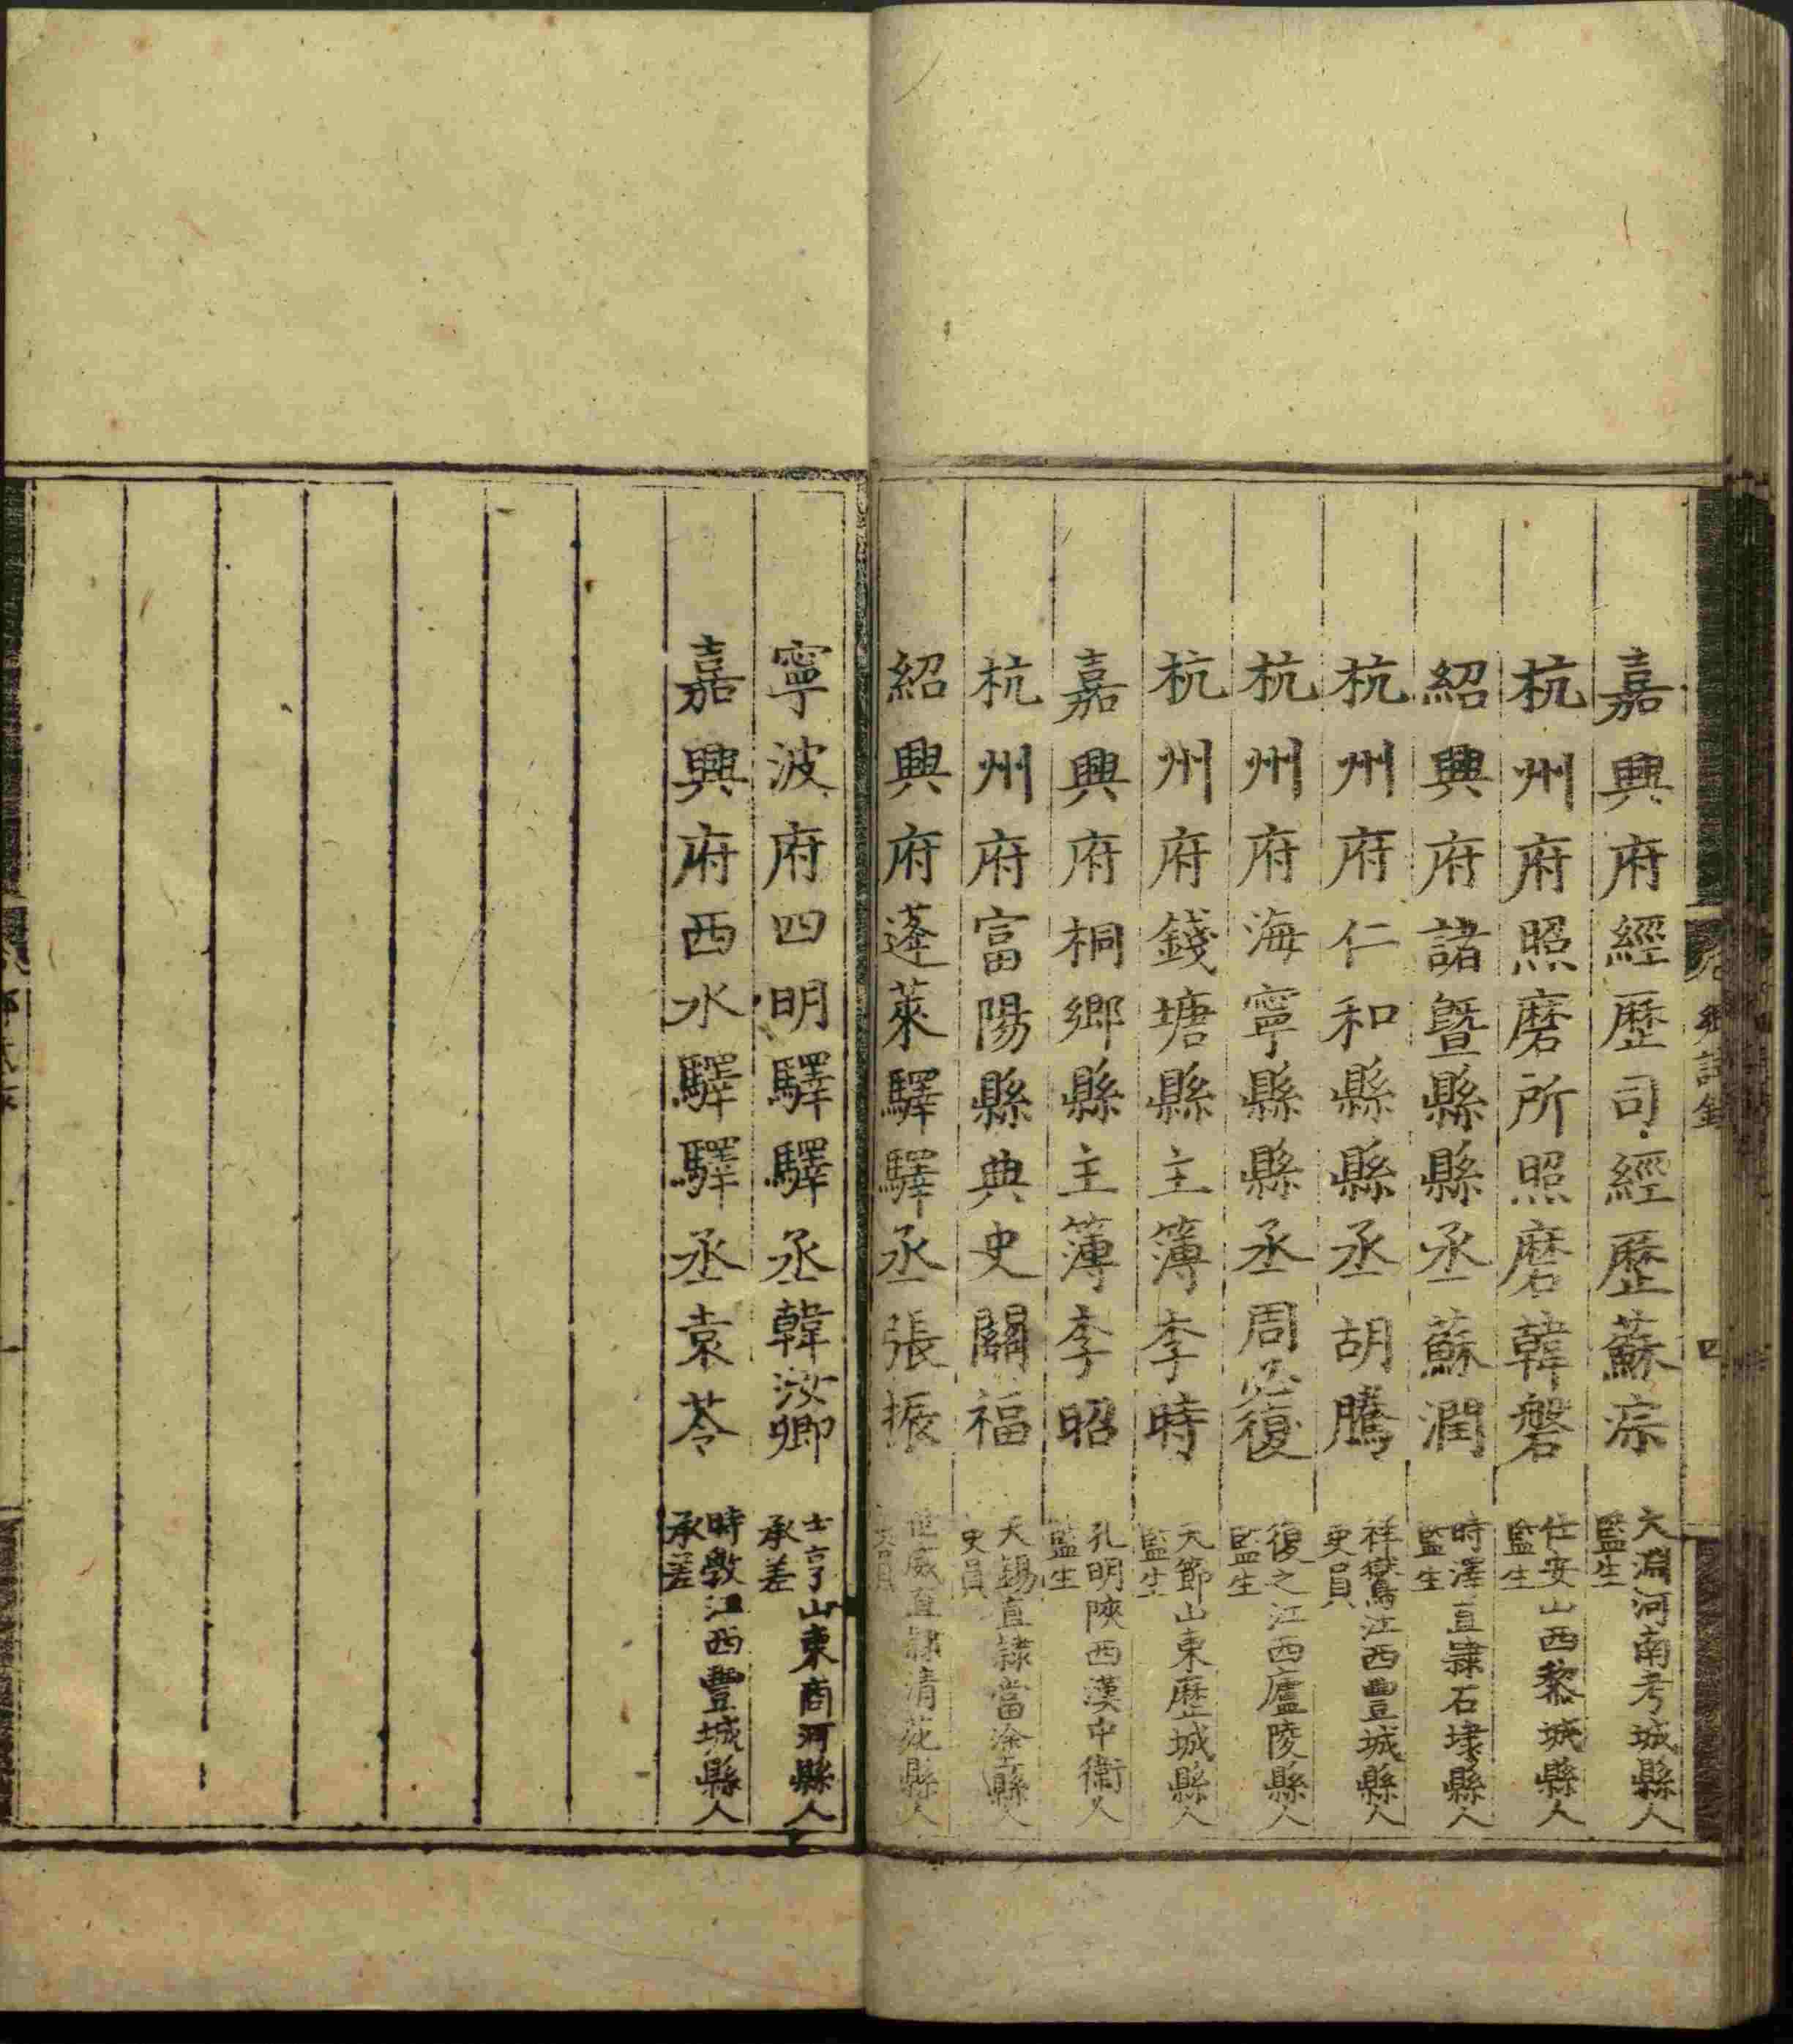 嘉興府經歷司經歷蘇淙
大淵河南考城縣人
監生
杭州府照磨所照磨韓磐
仕安山西黎城縣人
監生
紹興府諸暨縣縣丞蘇潤
時澤直隸石埭縣人
監生
杭州府仁和縣縣丞胡騰
祥鸑江西豐城縣人
吏員
杭州府海寧縣縣丞周必復
復之江西廬陵縣人
監生
杭州府錢塘縣主簿李時
天節山東歷城縣人
監生
嘉興府桐鄉縣主簿李昭
孔明陝西漢中衛人
監生
杭州府富陽縣典史關福
天錫直隸當塗縣人
吏員
紹興府蓬萊驛驛丞張振
世威直隸清苑縣人
寧波府四明驛驛丞韓汝卿
士亨山東商河縣人
承差
嘉興府西水驛驛丞袁苓
時敷江西豐城縣人
承差
鄉試錄
四